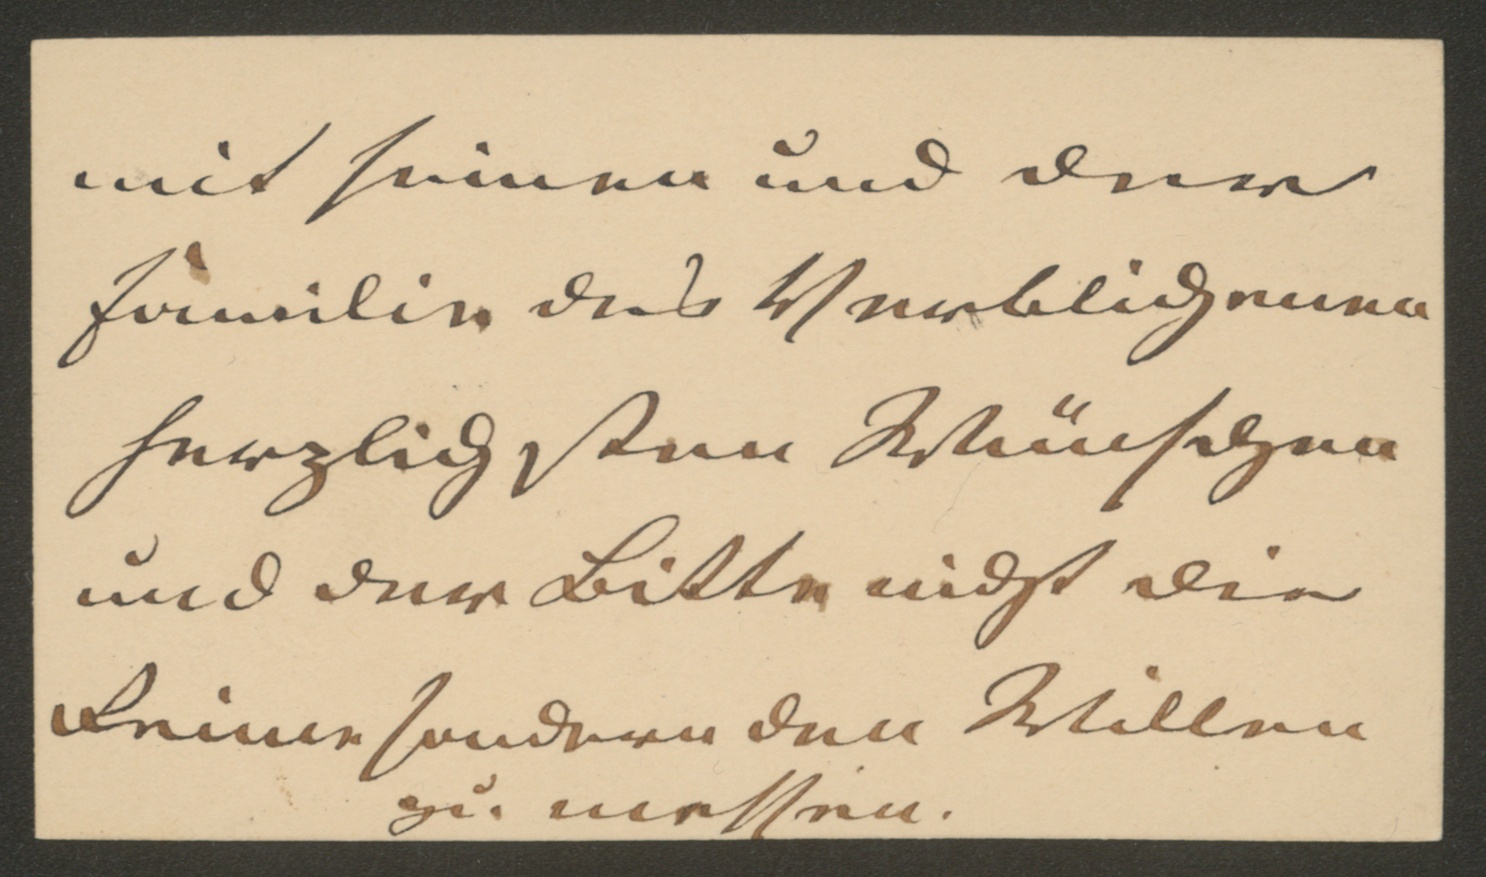 mit seinen und der
Familie des Verblichenen
herzlichsten Wünschen
und der Bitte nicht die
Reime sondern den Willen
zu messen.